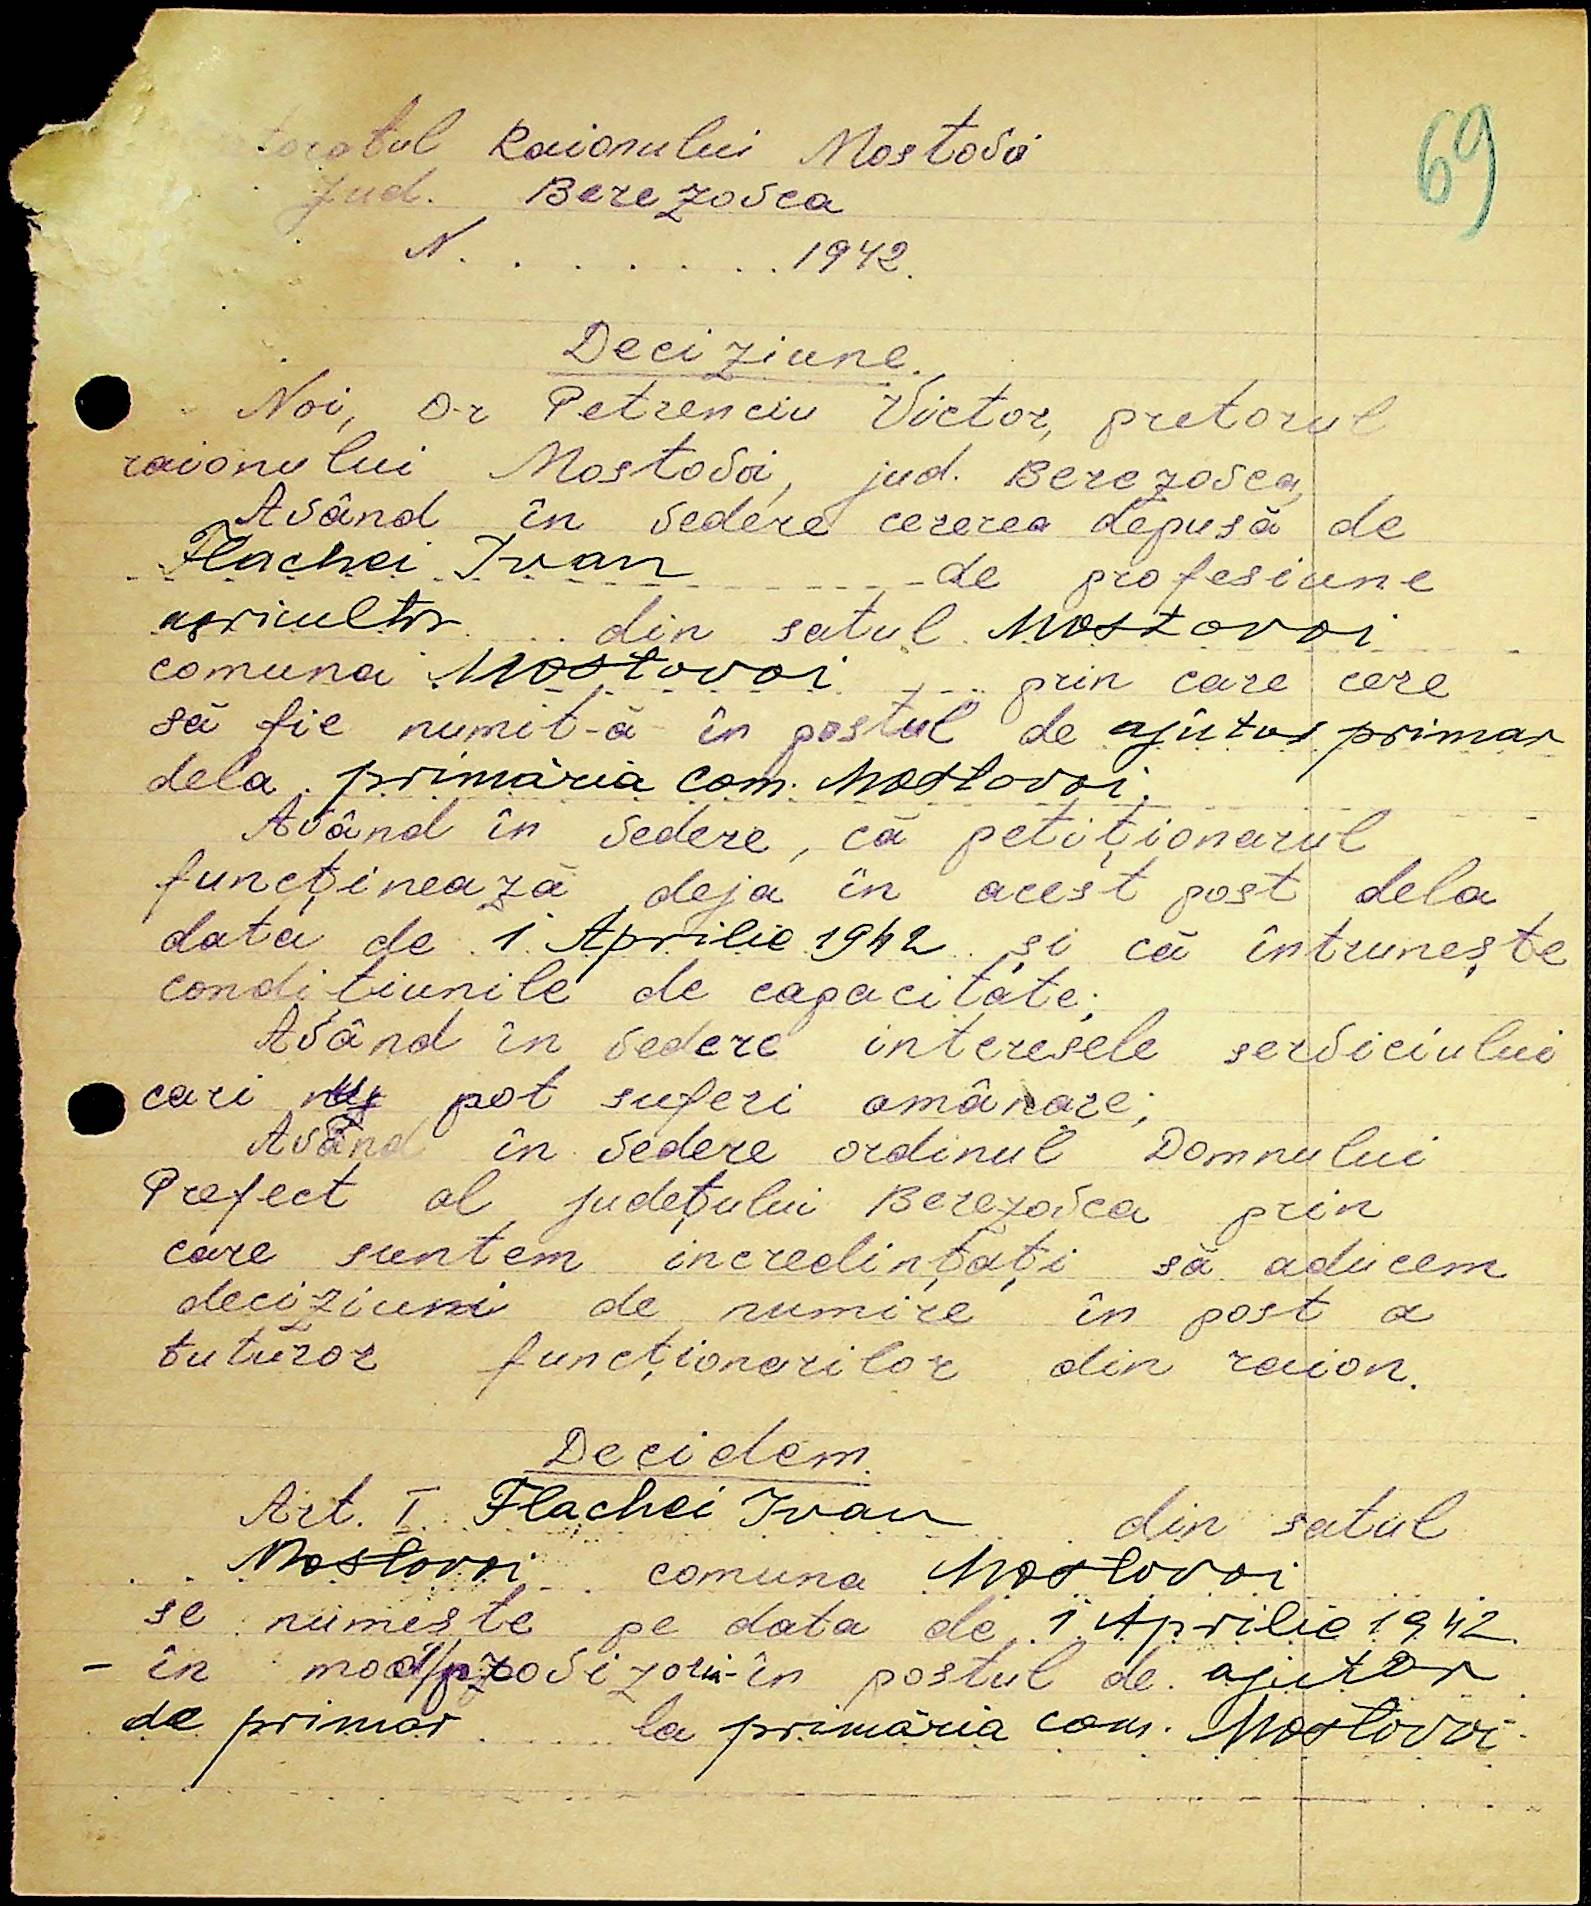 69
toratul Raionului Mostovoi
Jud. Berezovca
N. . . . . . . . 1942.
Deciziune.
Noi, D-r Petrenciu Victor, pretorul
raionului Mostovoi, jud. Berezovca,
Având în vedere cererea depusă de
Flachei Ivan de profesiune
agricultor din satul Mostovoi
comuna Mostovoi prin care cere
să fie numit-ă în postul de ajutor primar
dela primăria com. Mostovoi.
Având în vedere, că petiționarul
funcținează deja în acest post dela
data de 1 Aprilie 1942 și că întrunește
condițiunile de capacitate;
Având în vedere interesele serviciului
cari nu pot suferi amânare;
Având în vedere ordinul Domnului
Prefect al județului Berezovca prin
care suntem incredințați să aducem
deciziuni de numire în post a
tuturor funcționarilor din raion.
Decidem.
Art. I. Flachei Ivan din satul
Mostovoi comuna Mostovoi
se numește pe data de 1 Aprilie 1942
- în mod provizoriu - în postul de ajutor
de primar la primăria com. Mostovoi.